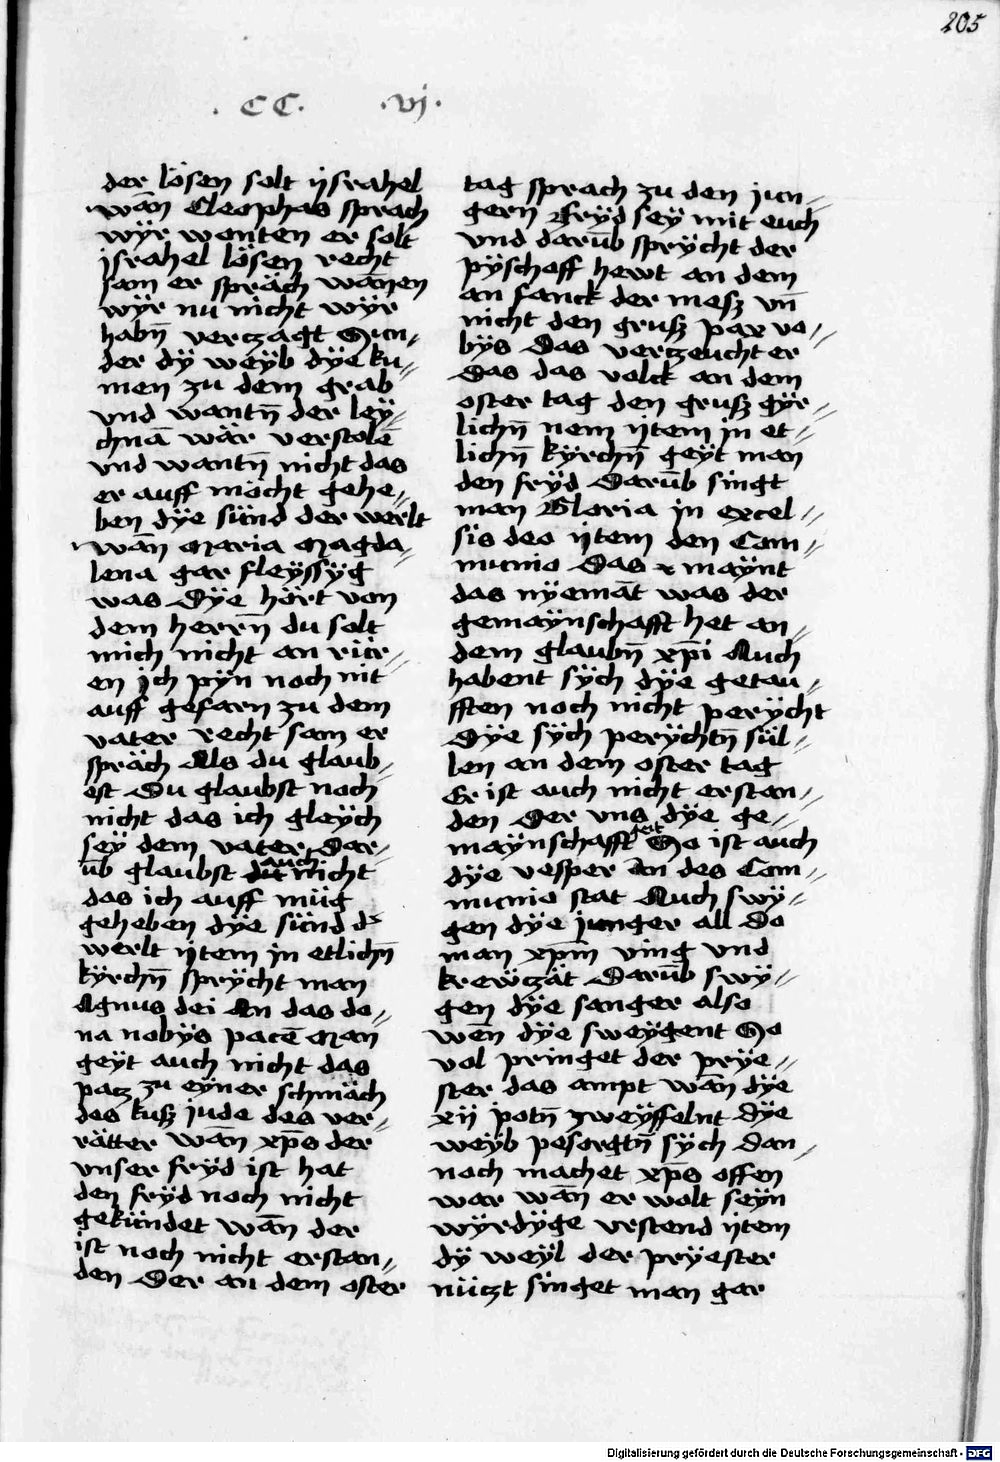 205
. CC. .vj.
der lösen solt ijsrahel
wān Cleophas sprach
wÿr wonten er solt
jsrahel lösen recht
sam er spräch wānen
wÿr nu nicht wÿr
habn̄ verzagt Sun⸗
der dÿ weÿb dÿe ku⸗
men zu dem grab
vnd wantn̄ der leÿ⸗
chnā wär verstolē
vnd wantn̄ nicht das
er auff möcht gehe⸗
ben dÿe sünd der werlt
wān Maria Magda⸗
lena gar fleÿssÿg
was Dÿe hört von
dem herrn̄ du solt
mich nicht an rür⸗
en jch pÿn noch nit
auff gefarn zu dem
vater recht sam er
spräch Als du glaub⸗
est Du glaubst noch
nicht das ich gleÿch
seÿ dem vater Dar⸗
ūb glaubst du auch nicht
das ich auff müg
geheben dÿe sünd dʾ
werlt ijtem jn etlichn̄
kÿrchn̄ sprÿcht man
Agnus dei An das do⸗
na nobÿs pacē Man
geÿt auch nicht das
pacz zu eÿner schmäch
des kuß jude des ver⸗
rätter wān xp̄s der
vnser frÿd ist hat
den frÿd noch nicht
gekündet wān der
ist noch nicht erstan⸗
den Der an dem oster
tag sprach zu den jun⸗
gern Frÿd seÿ mit euch
vnd darūb sprÿcht der
pÿschoff hewt an dem
an fanck der meß vn̄
nicht den gruß pax vo⸗
bÿs Das verzeucht er
Das das volck an dem
oster tag den gruß gÿr⸗
lichn̄ nem ijtem jn et⸗
lichn̄ kÿrchn̄ geÿt man
den frÿd Darūb singt
man Gloria jn excel⸗
sis deo ijtem den Com⸗
munio Das maÿnt
das nÿemāt was der
gemaÿnschafft het an⸗
dem glaubn̄ xp̄i Auch
habent sÿch dÿe getau⸗
fften noch nicht perÿcht
Dÿe sÿch perÿchtn̄ sül⸗
len an dem oster tag
Er ist auch nicht erstan⸗
den Der vns dÿe ge⸗
maÿnschafft geit So ist auch
dÿe vesper An des Com⸗
munio stat Auch swÿ⸗
gen dÿe junger all Do
man xp̄m ving vnd
krewczät Darūb swÿ⸗
gen dÿe sanger also
wēn dÿe sweÿgent So
vol pringet der prÿe⸗
ster das ampt wān dÿe
xij potn̄ zweÿffelnt dÿe
weÿb pesorgtn̄ sÿch dan⸗
noch machet xp̄s offen
war wān er wolt seÿn
wÿrdÿge vrstend ijtem
dÿ weÿl der prÿester
nüczt singet man gar
Digitalisierung gefördert durch die Deutsche Forschungsgemeinschaft - DFG